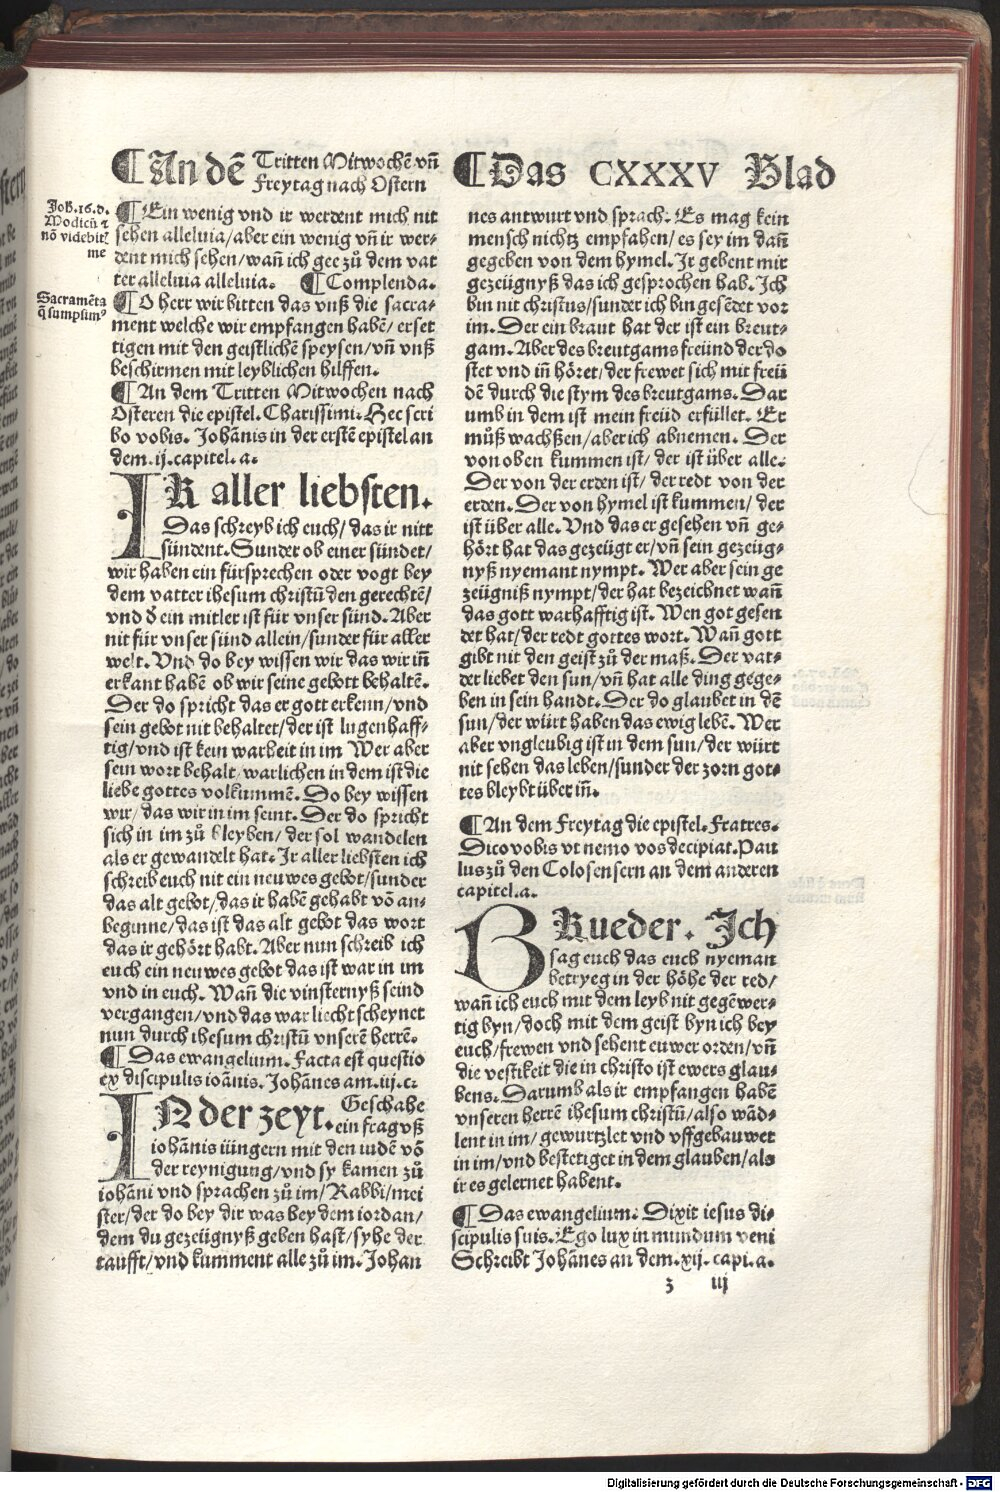 ¶An dē Tritten Mitwochē vn̄
Freytag nach Ostern
¶Das CXXXV Blad
Joh. 16. d.
Modicū ⁊
nō videbitꝭ
me
¶Ein wenig vnd ir werdent mich nit
sehen alleluia/aber ein wenig vn̄ ir wer⸗
dent mich sehen/wan̄ ich gee zů dem vat
ter alleluia alleluia. ¶Complenda.
Sacramēta
q̄ sumpsimꝰ
¶O herr wir bitten das vnß die sacra⸗
ment welche wir empfangen habē/ erset
tigen mit den geistlichē speysen/vn̄ vnß
beschirmen mit leyblichen hilffen.
¶An dem Tritten Mitwochen nach
Osteren die epistel. Charissimi. Hec scri
bo vobis. Johānis in der erstē epistel an
dem .ij. capitel. a.
IR aller liebsten.
Das schreyb ich euch/ das ir nitt
sündent. Sunder ob einer sündet/
wir haben ein fürsprechen oder vogt bey
dem vatter ihesum christū den gerechtē/
vnd d̄ ein mitler ist für vnser sünd. Aber
nit für vnser sünd allein/sunder für aller
welt. Vnd do bey wissen wir das wir in̄
erkant habē ob wir seine gebott behaltē.
Der do spricht das er gott erkenn/vnd
sein gebot nit behaltet/der ist lugenhaff⸗
tig/vnd ist kein warheit in im Wer aber
sein wort behalt/warlichen in dem ist die
liebe gottes volkummē. Do bey wissen
wir/ das wir in im seint. Der do spricht
sich in im zů bleyben/ der sol wandelen
als er gewandelt hat. Ir aller liebsten ich
schreib euch nit ein neuwes gebot/sunder
das alt gebot/das ir habē gehabt vō an⸗
beginne/das ist das alt gebot das wort
das ir gehört habt. Aber nun schreib ich
euch ein neuwes gebot das ist war in im
vnd in euch. Wan̄ die vinsternyß seind
vergangen/vnd das war liecht scheynet
nun durch ihesum christū vnserē herrē.
¶Das ewangelium. Facta est questio
ex discipulis ioānis. Johānes am .iij. c.
IN der zeyt. Geschahe
ein frag vß
iohānis iüngern mit den iudē vō
der reynigung/vnd sy kamen zů
iohāni vnd sprachen zů im/Rabbi/mei
ster/der do bey dir was bey dem iordan/
dem du gezeügnyß geben hast/syhe der
taufft/vnd kumment alle zů im. Johan
nes antwurt vnd sprach. Es mag kein
mensch nichtz empfahen/es sey im dan̄
gegeben von dem hymel. Ir gebent mir
gezeügnyß das ich gesprochen hab. Ich
bin nit christus/sunder ich bin gesēdet vor
im. Der ein braut hat der ist ein breut⸗
gam. Aber des breutgams freünd der do
stet vnd in̄ höret/der frewet sich mit freü
dē durch die stym des breutgams. Dar
umb in dem ist mein freüd erfüllet. Er
můß wachßen/aber ich abnemen. Der
von oben kummen ist/ der ist über alle.
Der von der erden ist/ der redt von der
erden. Der von hymel ist kummen/ der
ist über alle. Vnd das er gesehen vn̄ ge⸗
hört hat das gezeügt er/vn̄ sein gezeüg⸗
nyß nyemant nympt. Wer aber sein ge
zeügniß nympt/der hat bezeichnet wan̄
das gott warhafftig ist. Wen got gesen
det hat/der redt gottes wort. Wan̄ gott
gibt nit den geist zů der maß. Der vat⸗
der liebet den sun/vn̄ hat alle ding gege⸗
ben in sein handt. Der do glaubet in dē
sun/der würt haben das ewig lebē. Wer
aber vngleubig ist in dem sun/der würt
nit sehen das leben/sunder der zorn got⸗
tes bleybt über in̄.
¶An dem Freytag die epistel. Fratres.
Dico vobis vt nemo vos decipiat. Pau
lus zů den Colosensern an dem anderen
capitel. a.
BRueder. Ich
sag euch das euch nyeman
betryeg in der höhe der red/
wan̄ ich euch mit dem leyb nit gegēwer⸗
tig byn/doch mit dem geist byn ich bey
euch/frewen vnd sehent euwer orden/vn̄
die vestikeit die in christo ist ewers glau⸗
bens. Darumb als ir empfangen habē
vnseren herrē ihesum christū/also wād⸗
lent in im/gewurtzlet vnd vffgebauwet
in im/vnd bestetiget in dem glauben/als
ir es gelernet habent.
¶Das ewangelium. Dixit iesus di⸗
scipulis suis. Ego lux in mundum veni
Schreibt Johānes an dem .xij. capi. a.
z iij
Digitalisierung gefördert durch die Deutsche Forschungsgemeinschaft - DFG